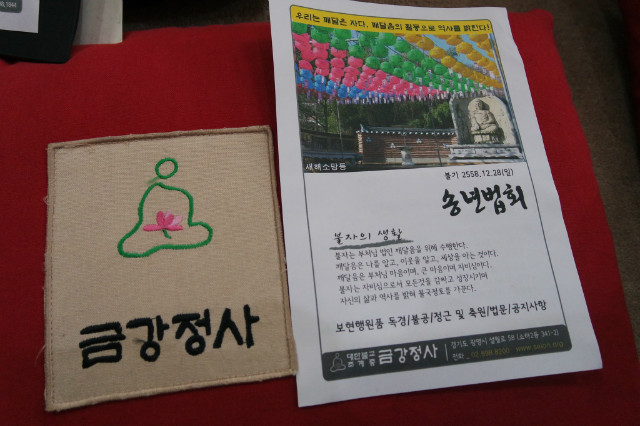 금강정사
우리는 깨달은 자다, 깨달음의 활동으로 역사를 밝힌다!
새해소망등
불기 2558.12.28(일)
송년법회
불자의 생활
불자는 부처님 법인 깨달음을 위해 수행한다.
깨달음은 나를 알고, 이웃을 알고, 세상을 아는 것이다.
깨달음은 부처님 마음이며, 큰 마음이며 자비심이다.
불자는 자비심으로서 모든것을 감싸고 성장시키며
자신의 삶과 역사를 밝혀 불국정토를 가꾼다.
보현행원품 독경/불공/정근 및 축원/법문/공지사항
대한불교
조계종 금강정사
경기도 광명시 설월로 59 (소하2동 341-2)
전화